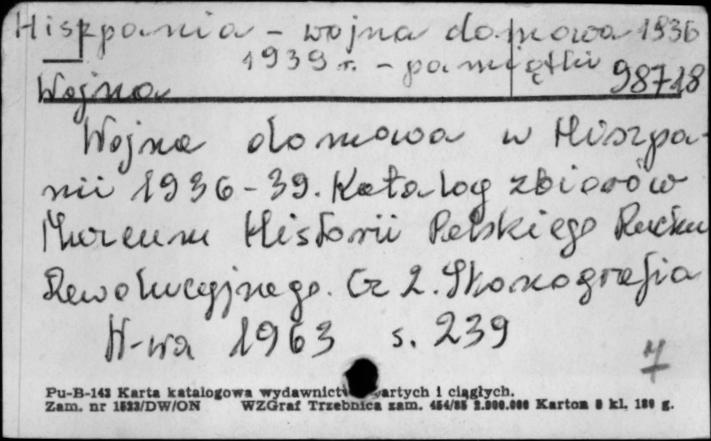 Hiszpania - wojna domowa 1936
1939 r. - pamiątki 98718
Wojna
Wojna domowa w Hiszpa-
nii 1936-39. Katalog zbiorów
Muzeum Historii Polskiego Ruchu
Rewolucyjnego. Cz 2. Ikonografia
W-wa 1963 s. 239
7
Pu-B-143 Karta katalogowa wydawnictw zwartych i ciągłych.
Zam. nr 1523/DW/ON WZGraf Trzebnica zam. 454/85 2.000.000 Karton kl. 180 g.